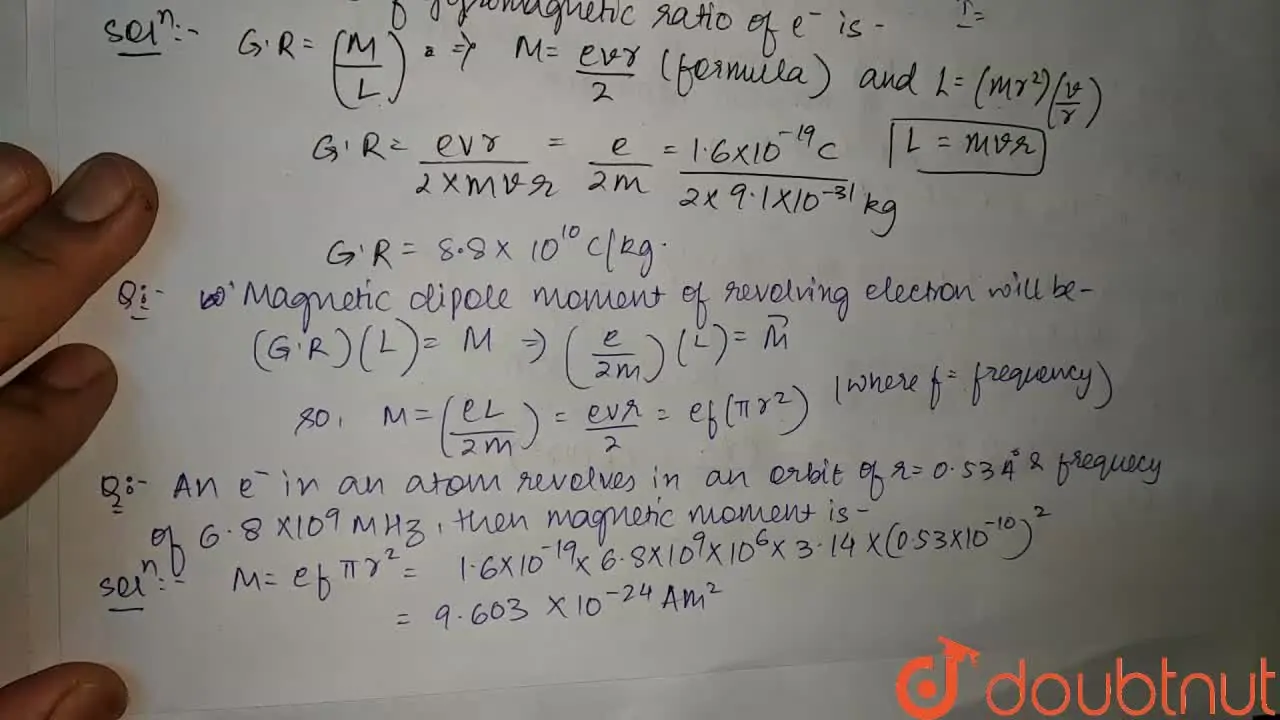 of gyromagnetic ratio of e⁻ is -
Solⁿ:- G.R = (M/L) ⇒ M = evr/2 (formula) and L = (mr²)(v/r)
G.R = evr/2×mvr = e/2m = 1.6×10⁻¹⁹C/2×9.1×10⁻³¹kg L = mvr
G.R = 8.8×10¹⁰ C/kg.
Q:- Magnetic dipole moment of revolving electron will be -
(G.R)(L) = M ⇒ (e/2m)(L) = M⃗
so, M = (eL/2m) = evr/2 = ef(πr²) (where f = frequency)
Q:- An e⁻ in an atom revolves in an orbit of r = 0.53A° & frequecy
of 6.8×10⁹ MHz, then magnetic moment is -
Solⁿ:- M = efπr² = 1.6×10⁻¹⁹×6.8×10⁹×10⁶×3.14×(0.53×10⁻¹⁰)²
= 9.603×10⁻²⁴ Am²
doubtnut